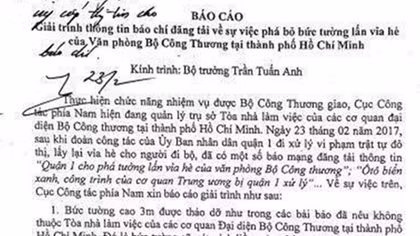 BÁO CÁO
Giải trình thông tin báo chí đăng tải về sự việc phá bỏ bức tường lấn vỉa hè
của Văn phòng Bộ Công Thương tại thành phố Hồ Chí Minh
Kính trình: Bộ trưởng Trần Tuấn Anh
23/2
Thực hiện chức năng nhiệm vụ được Bộ Công Thương giao, Cục Công
tác phía Nam hiện đang quản lý trụ sở Tòa nhà làm việc của các cơ quan đại
diện Bộ Công thương tại thành phố Hồ Chí Minh. Ngày 23 tháng 02 năm 2017,
sau khi đoàn công tác của Ủy Ban nhân dân quận 1 đi xử lý vi phạm trật tự đô
thị, lấy lại vỉa hè cho người đi bộ, đã có một số báo mạng đăng tải thông tin
"Quận 1 cho phá tường lấn vỉa hè của văn phòng Bộ Công thương"; "Ôtô biển
xanh, công trình của cơ quan Trung ương bị quận 1 xử lý"... Về sự việc trên,
Cục Công tác phía Nam xin báo cáo giải trình như sau:
1. Bức tường cao 3m được tháo dỡ như trong các bài báo đã nêu không
thuộc Tòa nhà làm việc của các cơ quan Đại diện Bộ Công thương tại thành phố